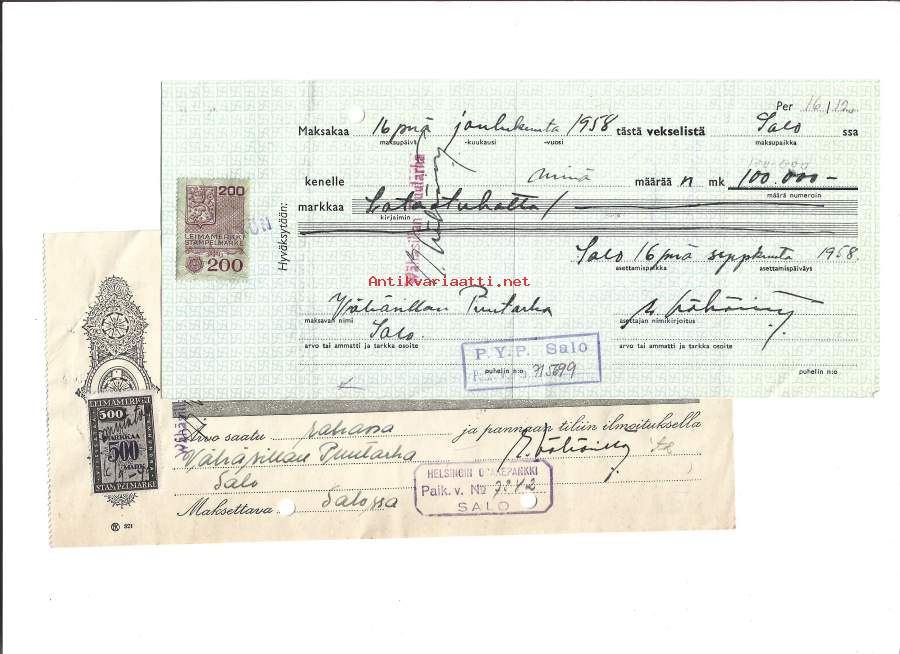 Per 16/12
Maksakaa 16 pnä joulukuuta 1958 tästä vekselistä Salo ssa
maksupäivä -kuukausi -vuosi maksupaikka
kenelle minä määrää n mk 100.000-
määrä numeroin
markkaa Satatuhatta/
kirjaimin
Hyväksytään:
Vähäsillan Puutarha
200
LEIMAMERKKI
STÄMPELMÄRKE
200
Salo 16 pnä syyskuuta 1958.
asettamispaikka asettamispäiväys
Vähäsillan Puutarha
maksavan nimi asettajan nimikirjoitus
Salo.
arvo tai ammatti ja tarkka osoite arvo tai ammatti ja tarkka osoite
P.Y.P. Salo
715699
puhelin n:o puhelin n:o
Antikvariaatti.net
antikvaarit.fi
LEIMAMERKKI
500
MARKKAA
500
MARK
STÄMPELMÄRKE
Arvo saatu rahassa ja pannaan tiliin ilmoituksella
Vähäsillan Puutarha
Salo
Maksettava Salossa
HELSINGIN OSAKEPANKKI
Paik. v. No
SALO
321